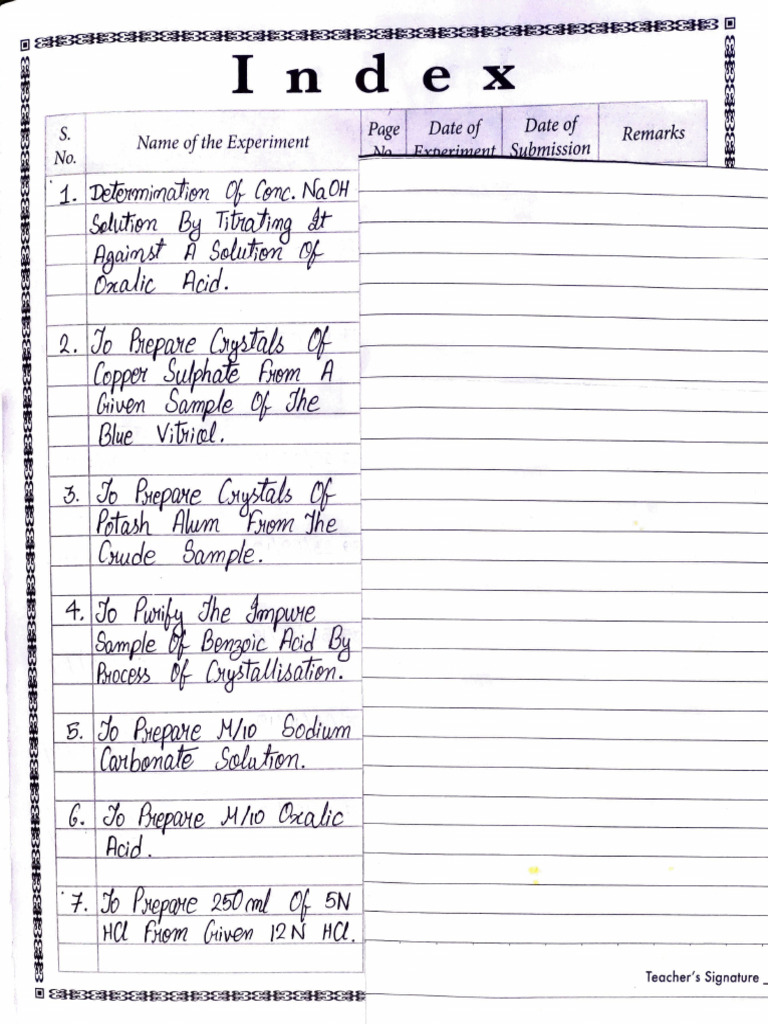 Index
S. No. Name of the Experiment Page No. Date of Experiment Date of Submission Remarks
1. Determination Of Conc. NaOH
Solution By Titrating It
Against A Solution Of
Oxalic Acid.
2. To Prepare Crystals Of
Copper Sulphate From A
Given Sample Of The
Blue Vitriol.
3. To Prepare Crystals Of
Potash Alum From The
Crude Sample.
4. To Purify The Impure
Sample Of Benzoic Acid By
Process Of Crystallisation.
5. To Prepare M/10 Sodium
Carbonate Solution.
6. To Prepare M/10 Oxalic
Acid.
7. To Prepare 250 ml Of 5N
HCl From Given 12N HCl.
Teacher's Signature